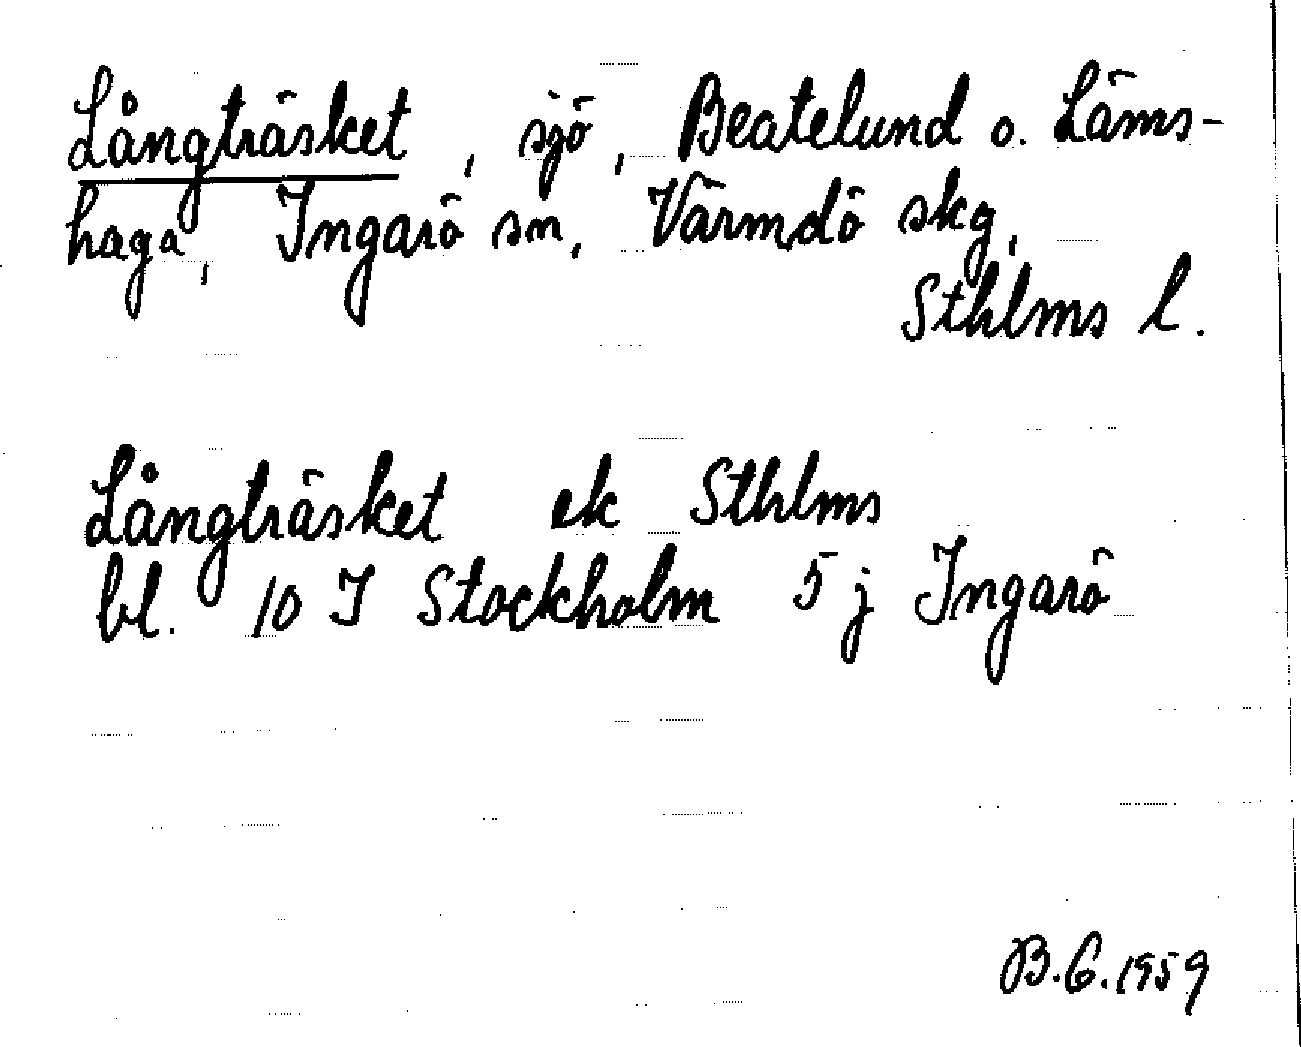 Långträsket, sjö, Beatelund o. Läms-
haga, Ingarö sn, Värmdö skg,
Sthlms l.
Långträsket ek Sthlms
bl. 10 I Stockholm 5 j Ingarö
B.G. 1959